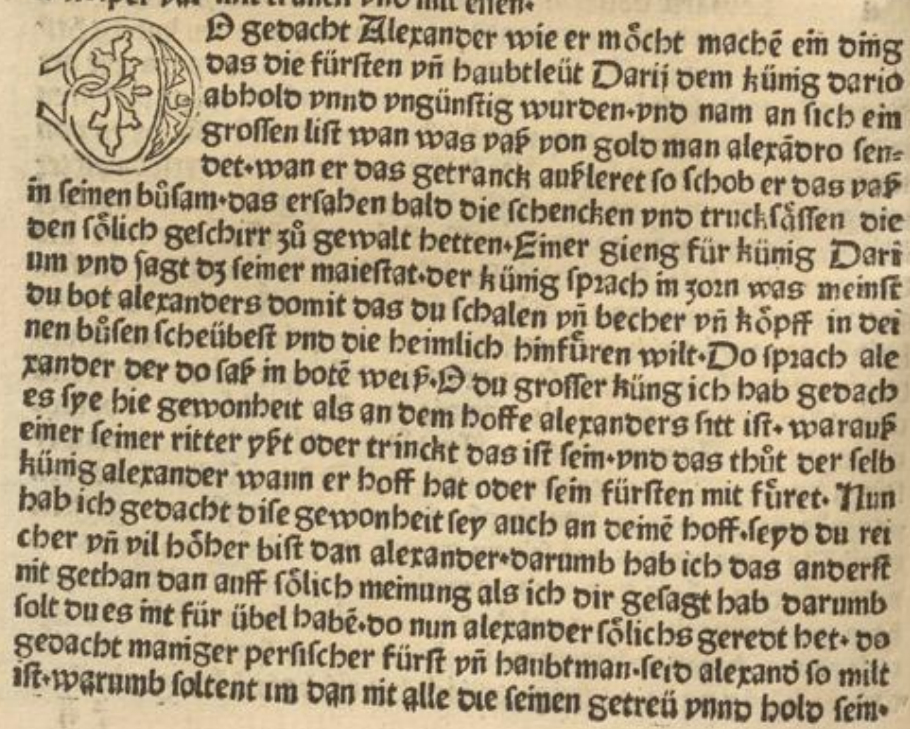 mit trancken vnd mit essen.
DO gedacht Alexander wie er möcht machē ein ding
das die fürsten vn̄ haubtleüt Darij dem künig dario
abhold vnnd vngünstig wurden.vnd nam an sich ein
grossen list wan was vaß von gold man alexādro sen=
det.wan er das getranck außleret so schob er das vaß
in seinen bůsam.das ersahen bald die schencken vnd truckſåſſen die
den sölich geschirr zů gewalt hetten.Einer gieng für künig Dari
um vnd sagt dz seiner maiestat.der künig sprach in zorn was meinst
du bot alexanders domit das du schalen vn̄ becher vn̄ köpff in dei
nen bůsen scheübest vnd die heimlich hinfüren wilt.Do sprach ale
xander der do saß in botē weiß.O du grosser küng ich hab gedach
es sye hie gewonheit als an dem hoffe alexanders sitt ist. warauß
einer seiner ritter yßt oder trinckt das ist sein.vnd das thůt der selb
künig alexander wann er hoff hat oder sein fürsten mit füret. Nun
hab ich gedacht dise gewonheit sey auch an deinē hoff.seyd du rei
cher vn̄ vil höher bist dan alexander.darumb hab ich das anderst
nit gethan dan auff sölich meinung als ich dir gesagt hab darumb
solt du es int für übel habē.do nun alexander sölichs geredt het. do
gedacht maniger persischer fürst vn̄ haubtman.seid alexand so milt
ist.warumb soltent im dan nit alle die seinen getreü vnnd hold sein.